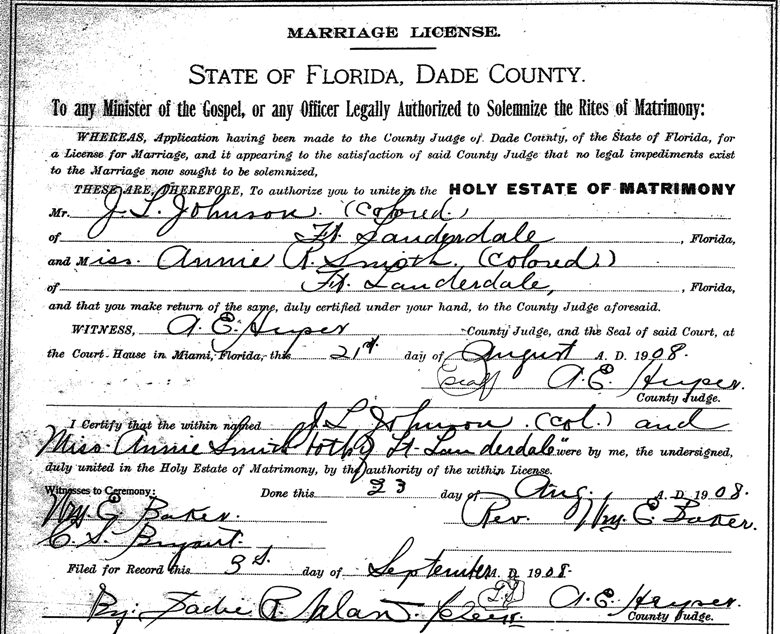 MARRIAGE LICENSE.
STATE OF FLORIDA, DADE COUNTY.
To any Minister of the Gospel, or any Officer Legally Authorized to Solemnize the Rites of Matrimony:
WHEREAS, Application having been made to the County Judge of Dade County, of the State of Florida, for
a License for Marriage, and it appearing to the satisfaction of said County Judge that no legal impediments exist
to the Marriage now sought to be solemnized,
THESE ARE, THEREFORE, To authorize you to unite in the HOLY ESTATE OF MATRIMONY
Mr. J L Johnson. (Colored.)
of Ft Lauderdale, Florida,
and Miss. Annie R. Smith. (Colored.)
of Ft. Lauderdale, Florida,
and that you make return of the same, duly certified under your hand, to the County Judge aforesaid.
WITNESS, A. E. Heyser County Judge, and the Seal of said Court, at
the Court-House in Miami, Florida, this 21st day of August A. D. 1908.
(Seal) A. E. Heyser.
County Judge.
I Certify that the within named J L Johnson. (Col.) and
Miss. Annie Smith both of Ft. Lauderdale" were by me, the undersigned,
duly united in the Holy Estate of Matrimony, by the authority of the within License.
Witnesses to Ceremony: Done this 23 day of Aug. A. D. 1908.
Wm. E Baker. Rev. Wm. E. Baker.
C. S. Bryant.
Filed for Record this 3d. day of September A. D. 1908.
By: Sadie R. Clerk. A. E. Heyser.
County Judge.